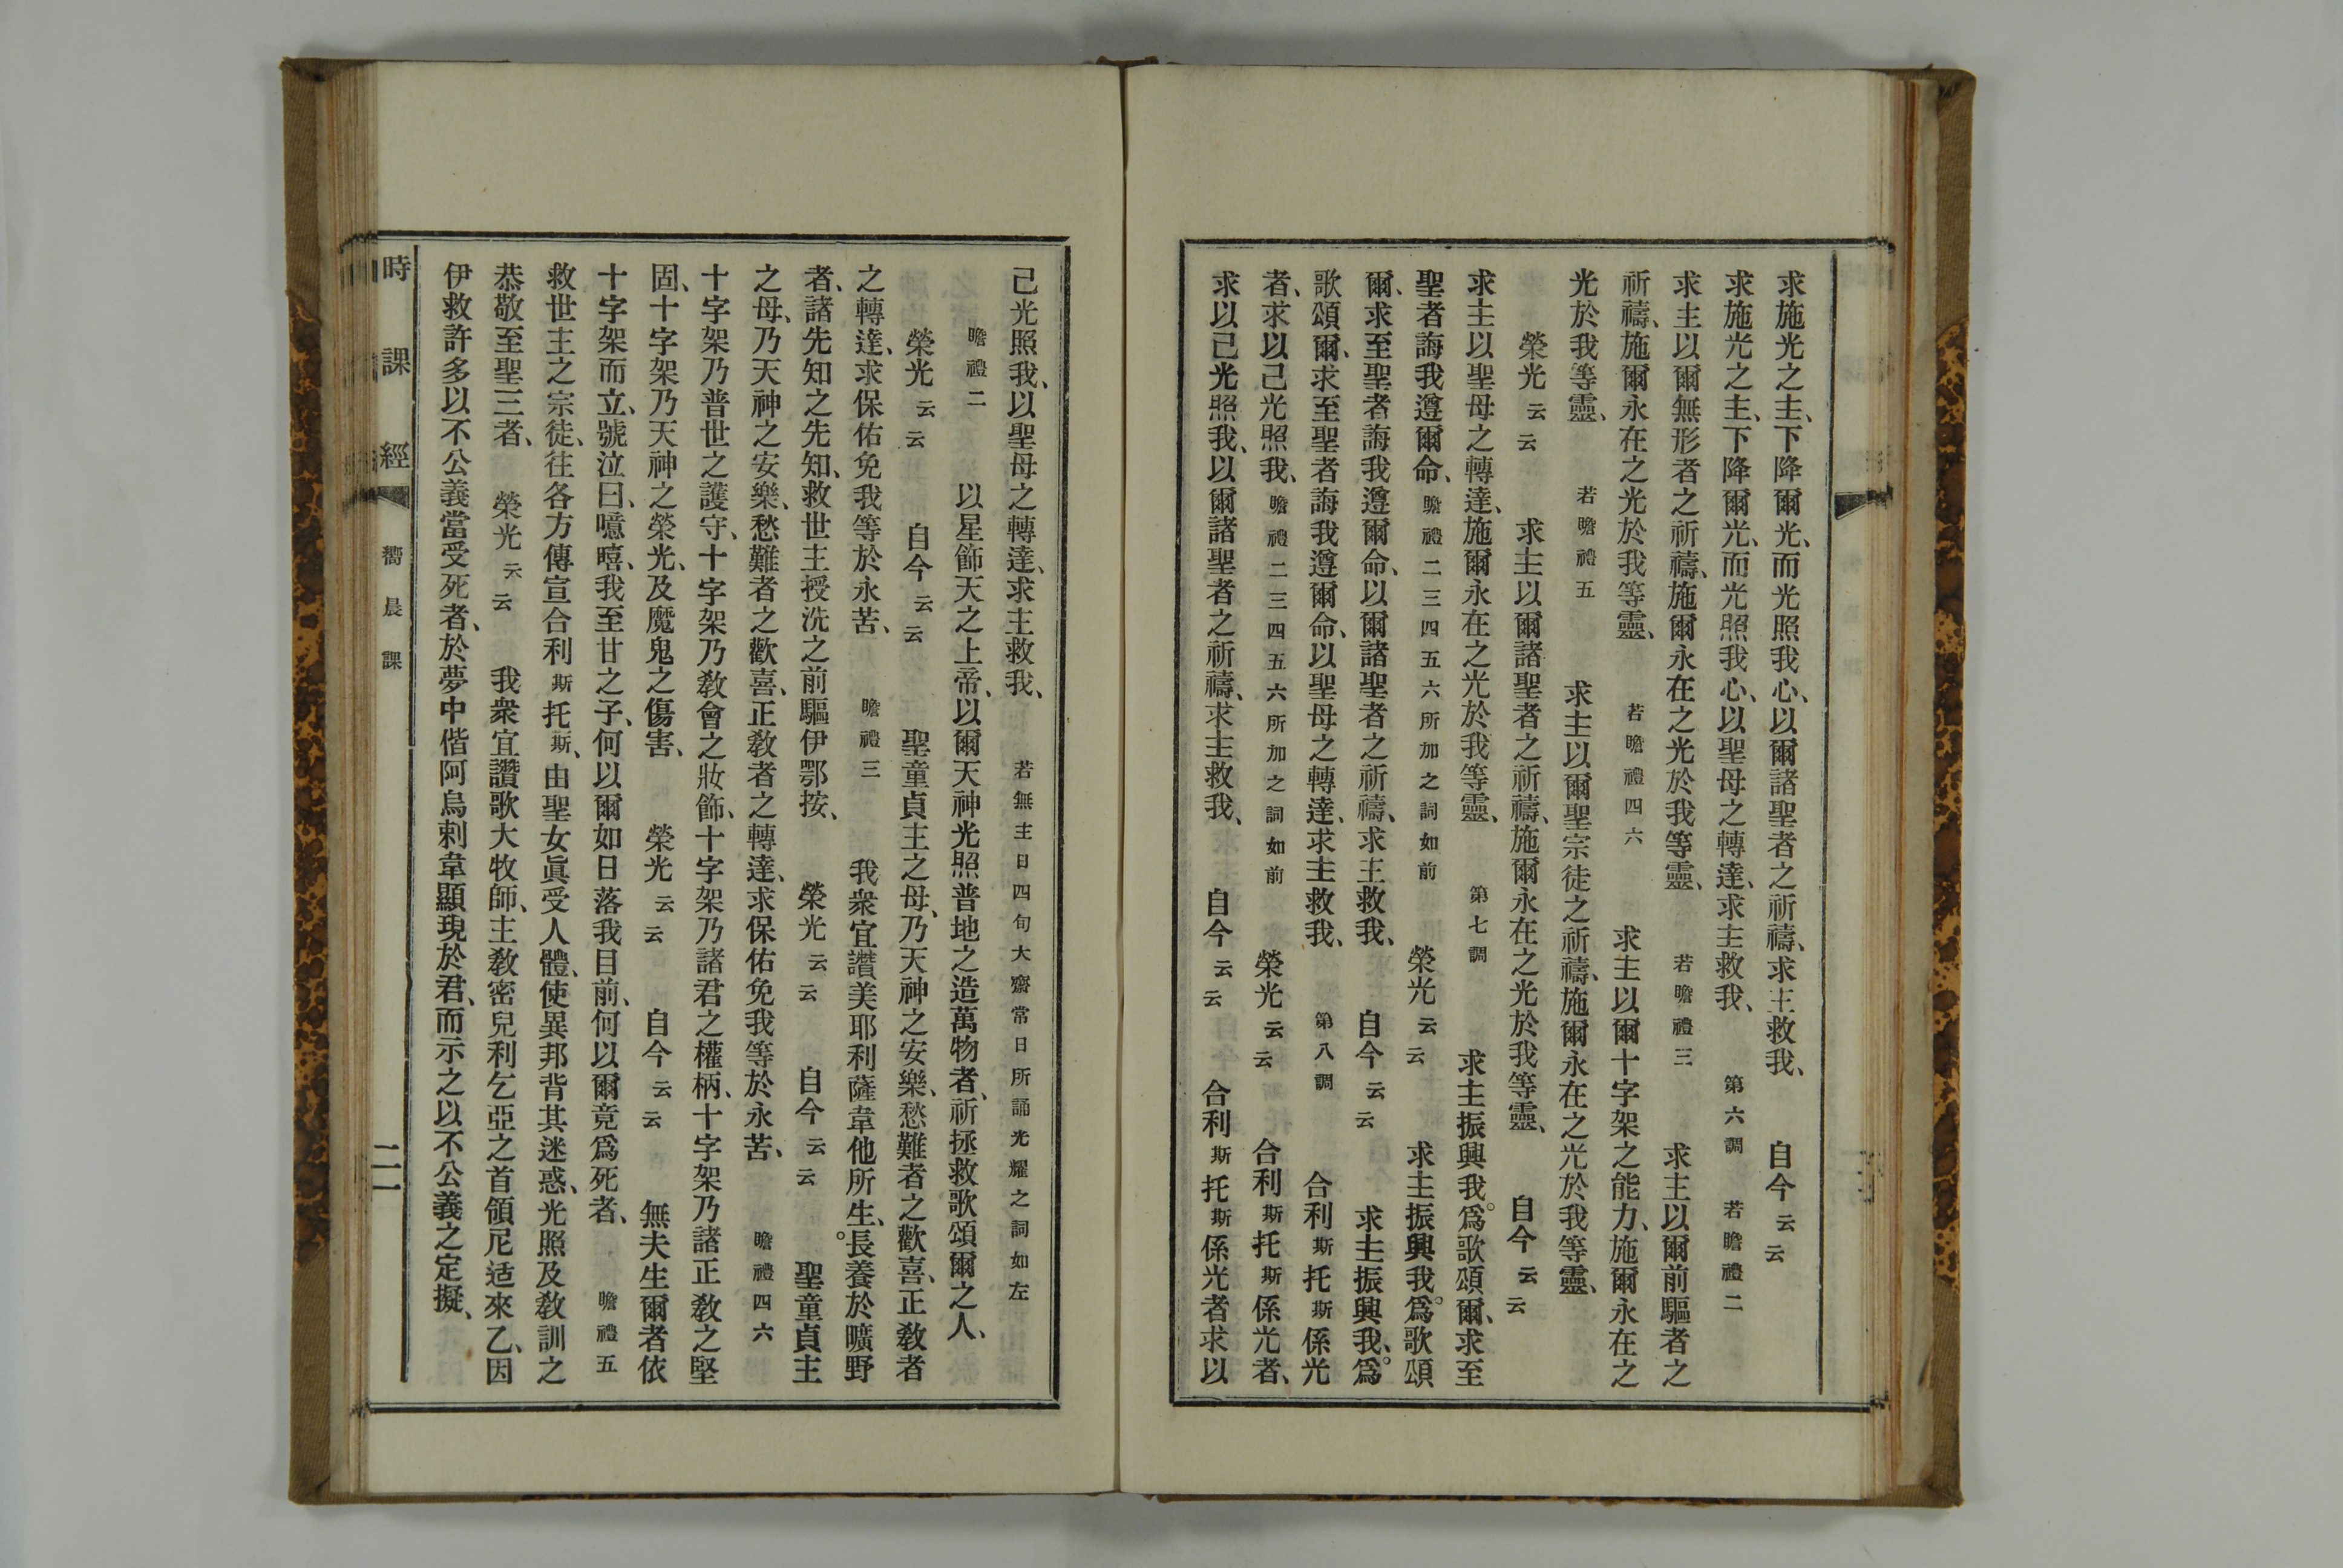 求施光之主、下降爾光、而光照我心、以爾諸聖者之祈禱、求主救我、 自今云云
求施光之主、下降爾光、而光照我心、以聖母之轉達、求主救我、 第六調 若瞻禮二
求主以爾無形者之祈禱、施爾永在之光於我等靈、 若瞻禮三 求主以爾前驅者之
祈禱、施爾永在之光於我等靈、 若瞻禮四六 求主以爾十字架之能力、施爾永在之
光於我等靈、 若瞻禮五 求主以爾聖宗徒之祈禱、施爾永在之光於我等靈、
榮光云云 求主以爾諸聖者之祈禱、施爾永在之光於我等靈、 自今云云
求主以聖母之轉達、施爾永在之光於我等靈、 第七調 求主振興我。爲歌頌爾、求至
聖者誨我遵爾命、瞻禮二三四五六所加之詞如前 榮光云云 求主振興我。爲歌頌
爾、求至聖者誨我遵爾命、以爾諸聖者之祈禱、求主救我、 自今云云 求主振興我、。爲
歌頌爾、求至聖者誨我遵爾命、以聖母之轉達、求主救我、 第八調 合利斯托斯係光
者、求以己光照我、瞻禮二三四五六所加之詞如前 榮光云云 合利斯托斯係光者、
求以己光照我、以爾諸聖者之祈禱、求主救我、 自今云云 合利斯托斯係光者求以
己光照我、以聖母之轉達、求主救我、 若無主日四旬大齋常日所誦光耀之詞如左
瞻禮二 以星飾天之上帝、以爾天神光照普地之造萬物者、祈拯救歌頌爾之人、
榮光云云 自今云云 聖童貞主之母、乃天神之安樂、愁難者之歡喜、正敎者
之轉達、求保佑免我等於永苦、 瞻禮三 我衆宜讚美耶利薩韋他所生、。長養於曠野
者、諸先知之先知、救世主授洗之前驅伊鄂按、 榮光云云 自今云云 聖童貞主
之母、乃天神之安樂、愁難者之歡喜、正敎者之轉達、求保佑免我等於永苦、 瞻禮四六
十字架乃普世之護守、十字架乃敎會之妝飾、十字架乃諸君之權柄、十字架乃諸正敎之堅
固、十字架乃天神之榮光、及魔鬼之傷害、 榮光云云 自今云云 無夫生爾者依
十字架而立、號泣曰、噫嘻、我至甘之子、何以爾如日落我目前、何以爾竟爲死者、 瞻禮五
救世主之宗徒、往各方傳宣合利斯托斯、由聖女眞受人體、使異邦背其迷惑、光照及敎訓之
恭敬至聖三者、 榮光云云 我衆宜讚歌大牧師、主敎密兒利乞亞之首領尼适來乙、因
伊救許多以不公義當受死者、於夢中偕阿烏剌韋顯現於君、而示之以不公義之定擬、
時課經 嚮晨課 二一